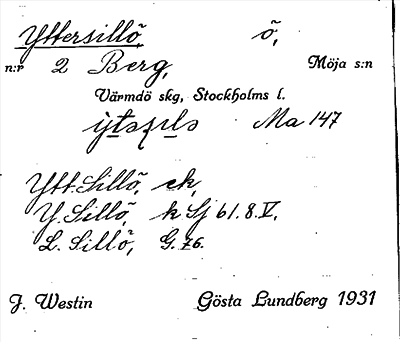 Yttersillö, ö,
n:r 2 Berg, Möja s:n
Värmdö skg, Stockholms l.
Ma 147
Ytt. Sillö, ek,
Y. Sillö, k Sj 61.8.V,
L. Sillö, G. 76.
J. Westin Gösta Lundberg 1931